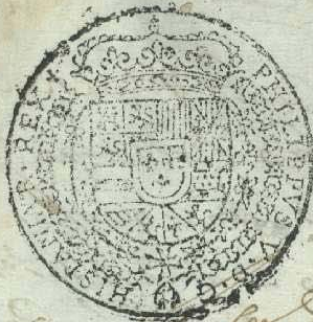 PHILIPPVS · V · D · G · HISPANIAR · REX